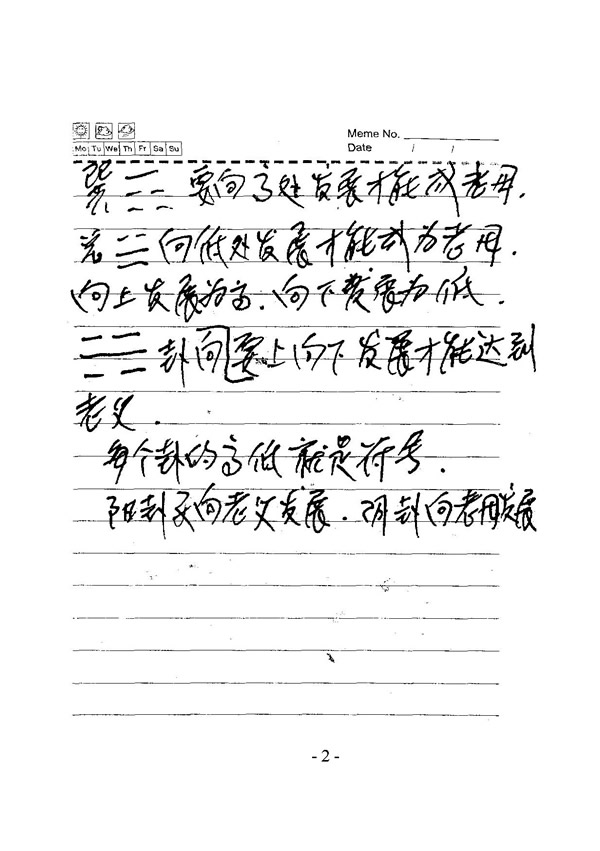 Meme No.
Mo Tu We Th Fr Sa Su
Date / /
巽 要向高处发展才能成老母.
兑 向低处发展才能成为老母.
向上发展为高.向下发展为低.
卦向要上向下发展才能达到
老父.
每个卦的高低就是符号.
阳卦要向老父发展.阴卦向老母发展
- 2 -